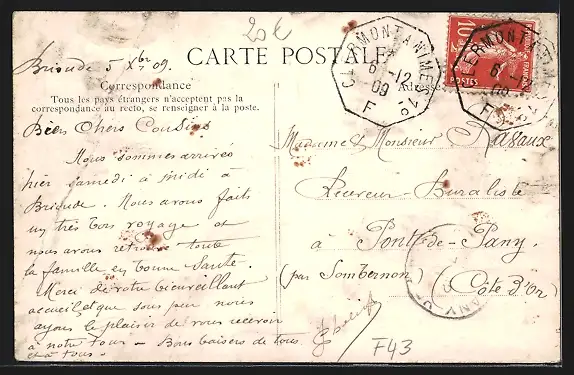 20€
CARTE POSTALE
Brioude 5 Xbr 09.
Correspondance
Tous les pays étrangers n'acceptent pas la
correspondance au recto, se renseigner à la poste.
Adresse
Biens Chers Cousins
Nous sommes arrivés
hier samedi à midi à
Brioude. Nous avons faits
un très bon voyage et
nous avons retrouvé toute
la famille en bonne Santé.
Merci de votre bienveillant
accueil et que sous peu nous
ayons le plaisir de vous recevoir
à notre tour - Bons baisers de tous
et à tous -
Madame & Monsieur Ravaux
Receveur-Buraliste
à Pont-de-Pany.
(par Sombernon) (Côte d'Or)
F43
CLERMONT A NIMES 1º
6 -12
09
F
10c
POSTES
CLERMONT A NIM
6 -
09
F